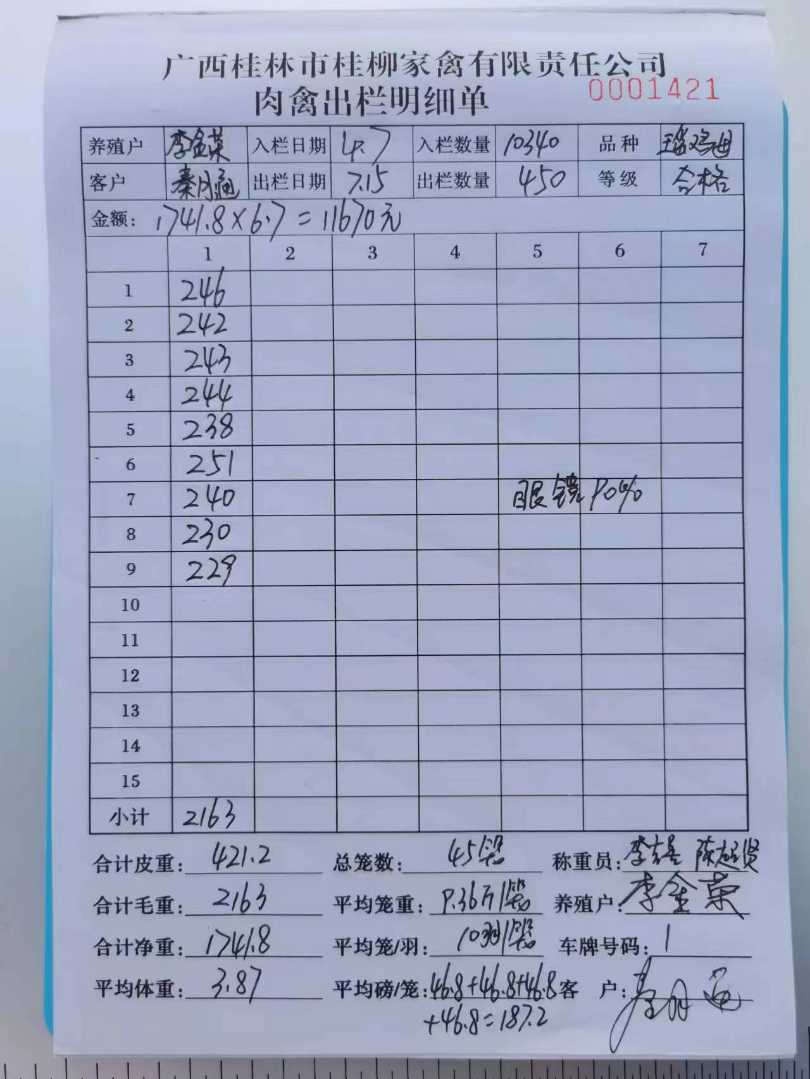 广西桂林市桂柳家禽有限责任公司
肉禽出栏明细单 0001421
养殖户 李金荣 入栏日期 4.7 入栏数量 10340 品种 瑶鸡母
客户 秦月通 出栏日期 7.15 出栏数量 450 等级 合格
金额: 1741.8×6.7=11670元
1 2 3 4 5 6 7
1 246
2 242
3 243
4 244
5 238
6 251
7 240 眼镜90%
8 230
9 229
10
11
12
13
14
15
小计 2163
合计皮重: 421.2 总笼数: 45笼 称重员: 陈超贤
合计毛重: 2163 平均笼重: 9.36斤/笼 养殖户: 李金荣
合计净重: 1741.8 平均笼/羽: 10羽/笼 车牌号码: 1
平均体重: 3.87 平均磅/笼: 46.8+46.8+46.8 客 户: 秦月通
+46.8=187.2